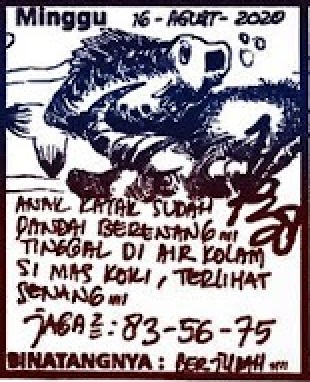 Minggu 16 - AGUST - 2020
ANAK KATAK SUDAH
PANDAI BERENANG
TINGGAL DI AIR KOLAM
SI MAS KOKI, TERLIHAT
SENANG
JAGA²: 83-56-75
BINATANGNYA: